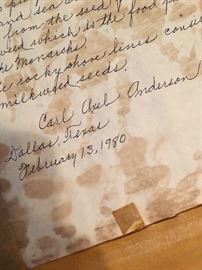 and sea a
from the seed
weed which is the food pl
the Monarchs
e rocky shore lines
milkweed seeds.
Carl Axel Anderson
Dallas, Texas
February 13, 1980